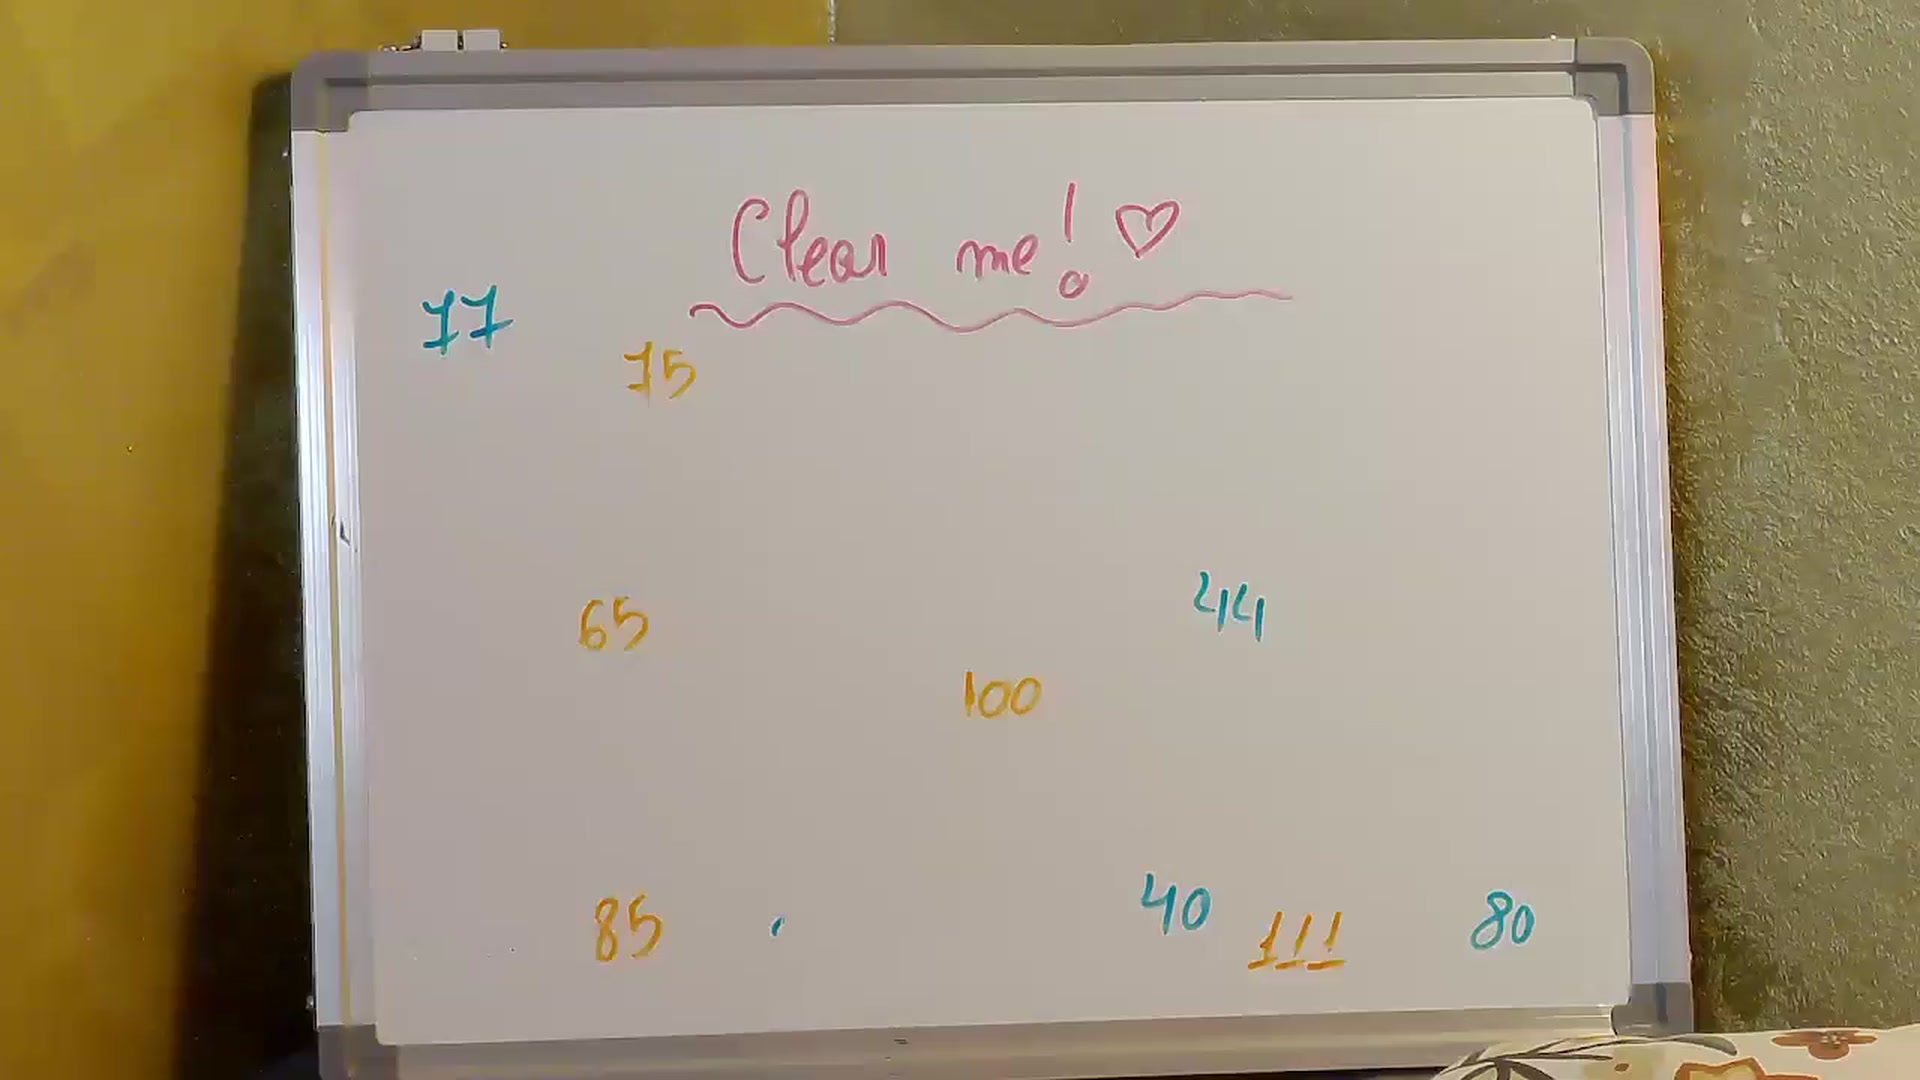 Clear me! ♡
77
75
65
44
100
85
40
111
80